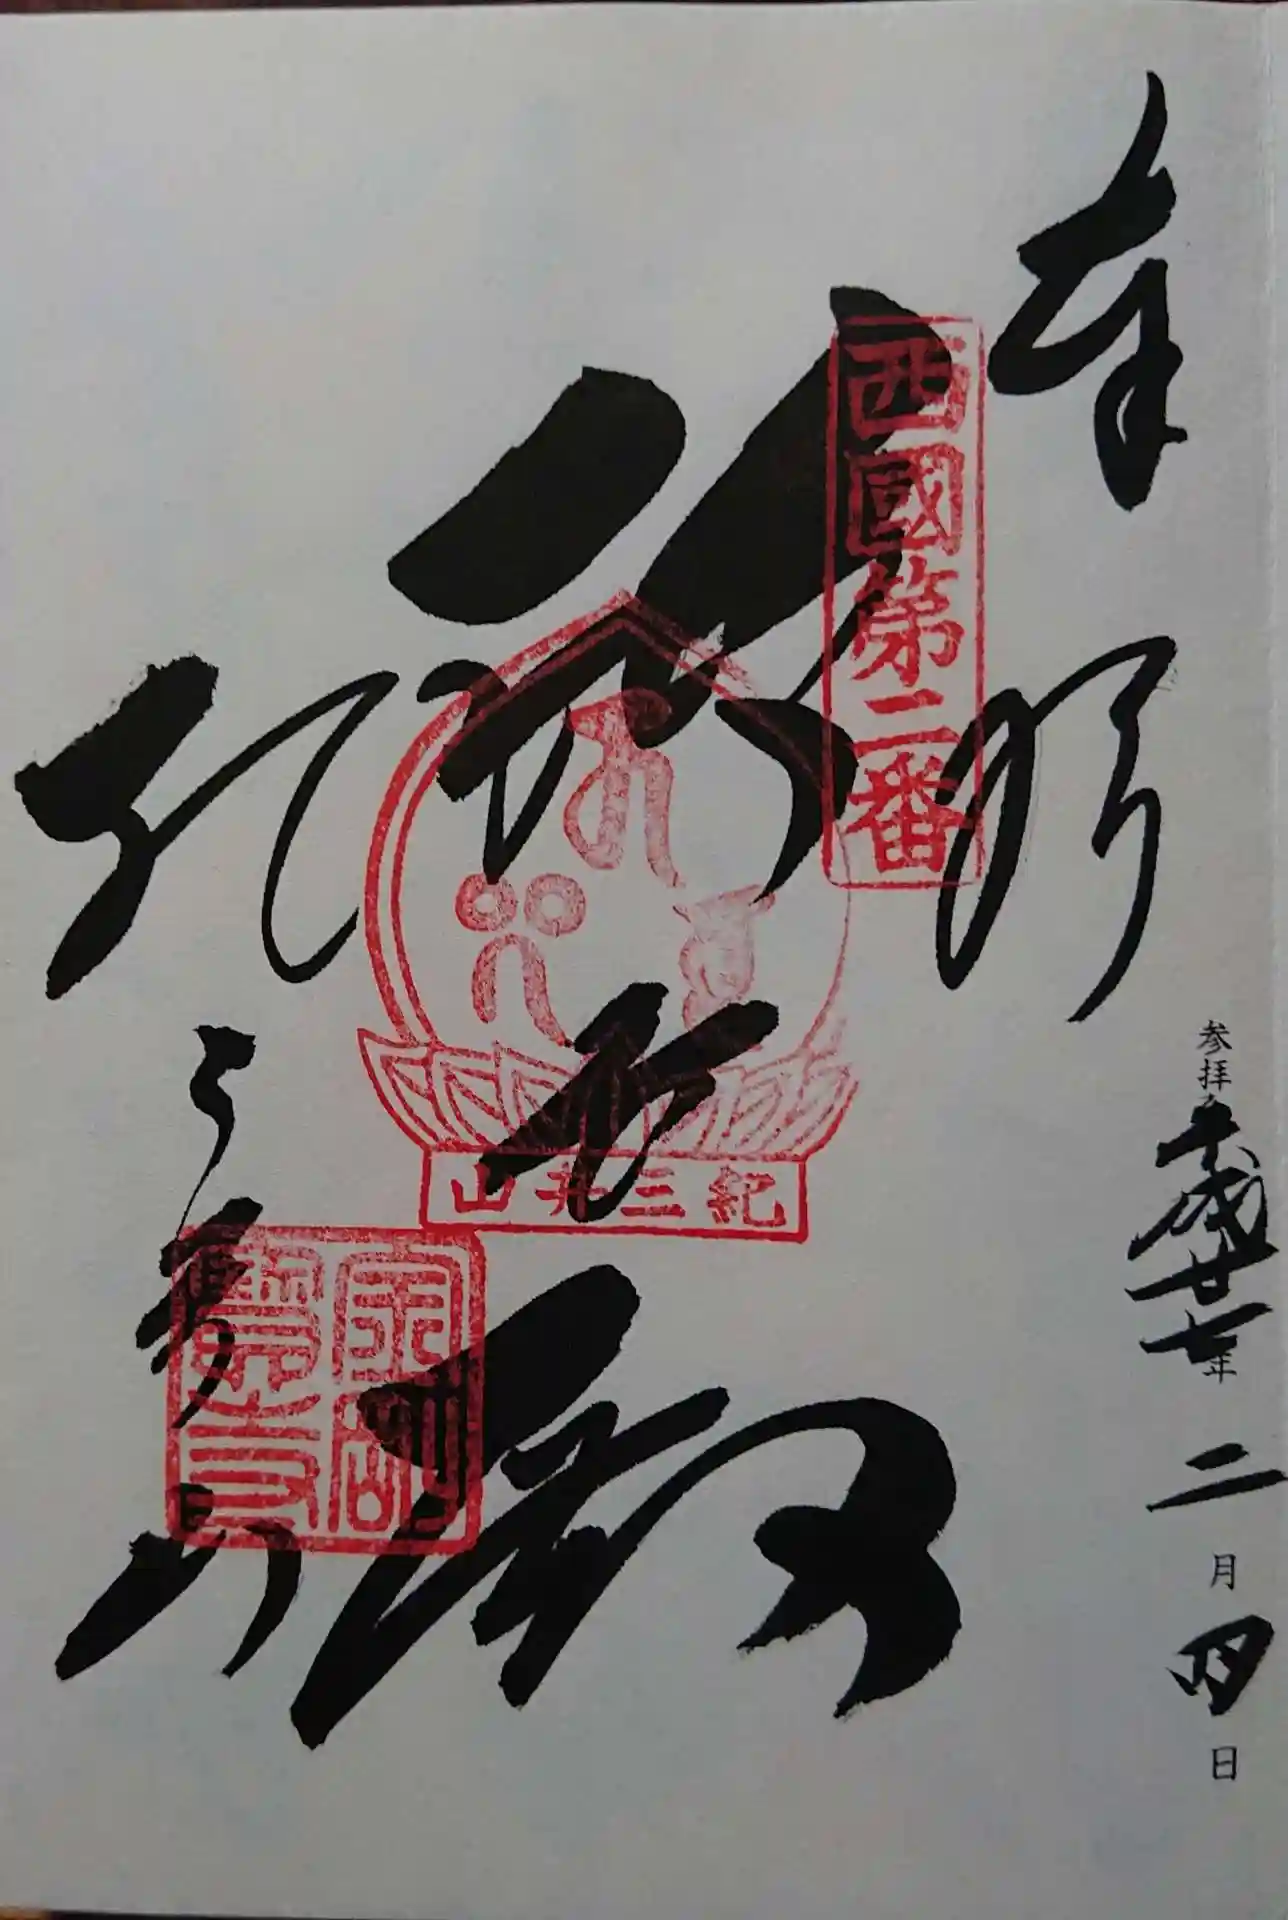 参拝 平成廿七年 二月四日
奉拝
西國第二番
救世殿
紀三井山
紀三井寺
金剛寶寺